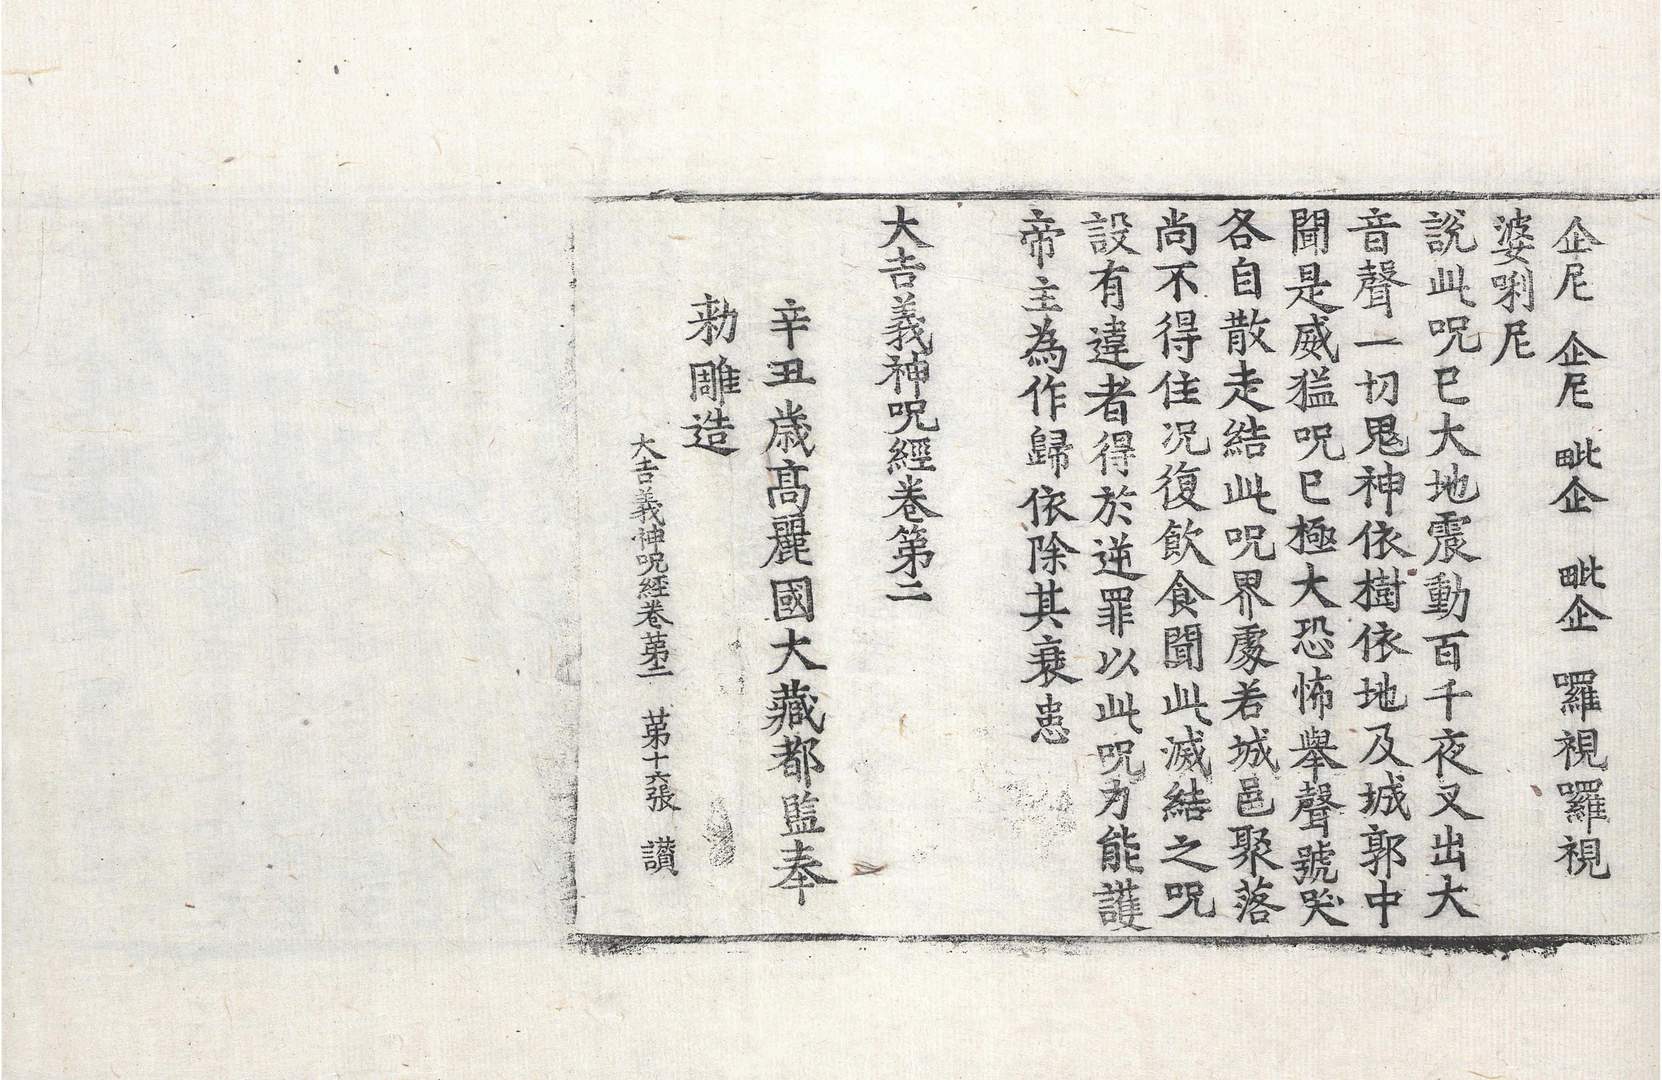 企尼 企尼 毗企 毗企 羅視囉羅視
婆唎尼
說此呪已大地震動百千夜叉出大
音聲一切鬼神依樹依地及城郭中
聞是威猛呪已極大恐怖舉聲號哭
各自散走結此呪界處若城邑聚落
尚不得住况復飲食聞此滅結之呪
設有違者得於逆罪以此呪力能護
帝主為作歸依除其衰患
大吉義神呪經卷第二
辛丑歲高麗國大藏都監奉
勑雕造
大吉義神呪經卷第二 第十六張 讃